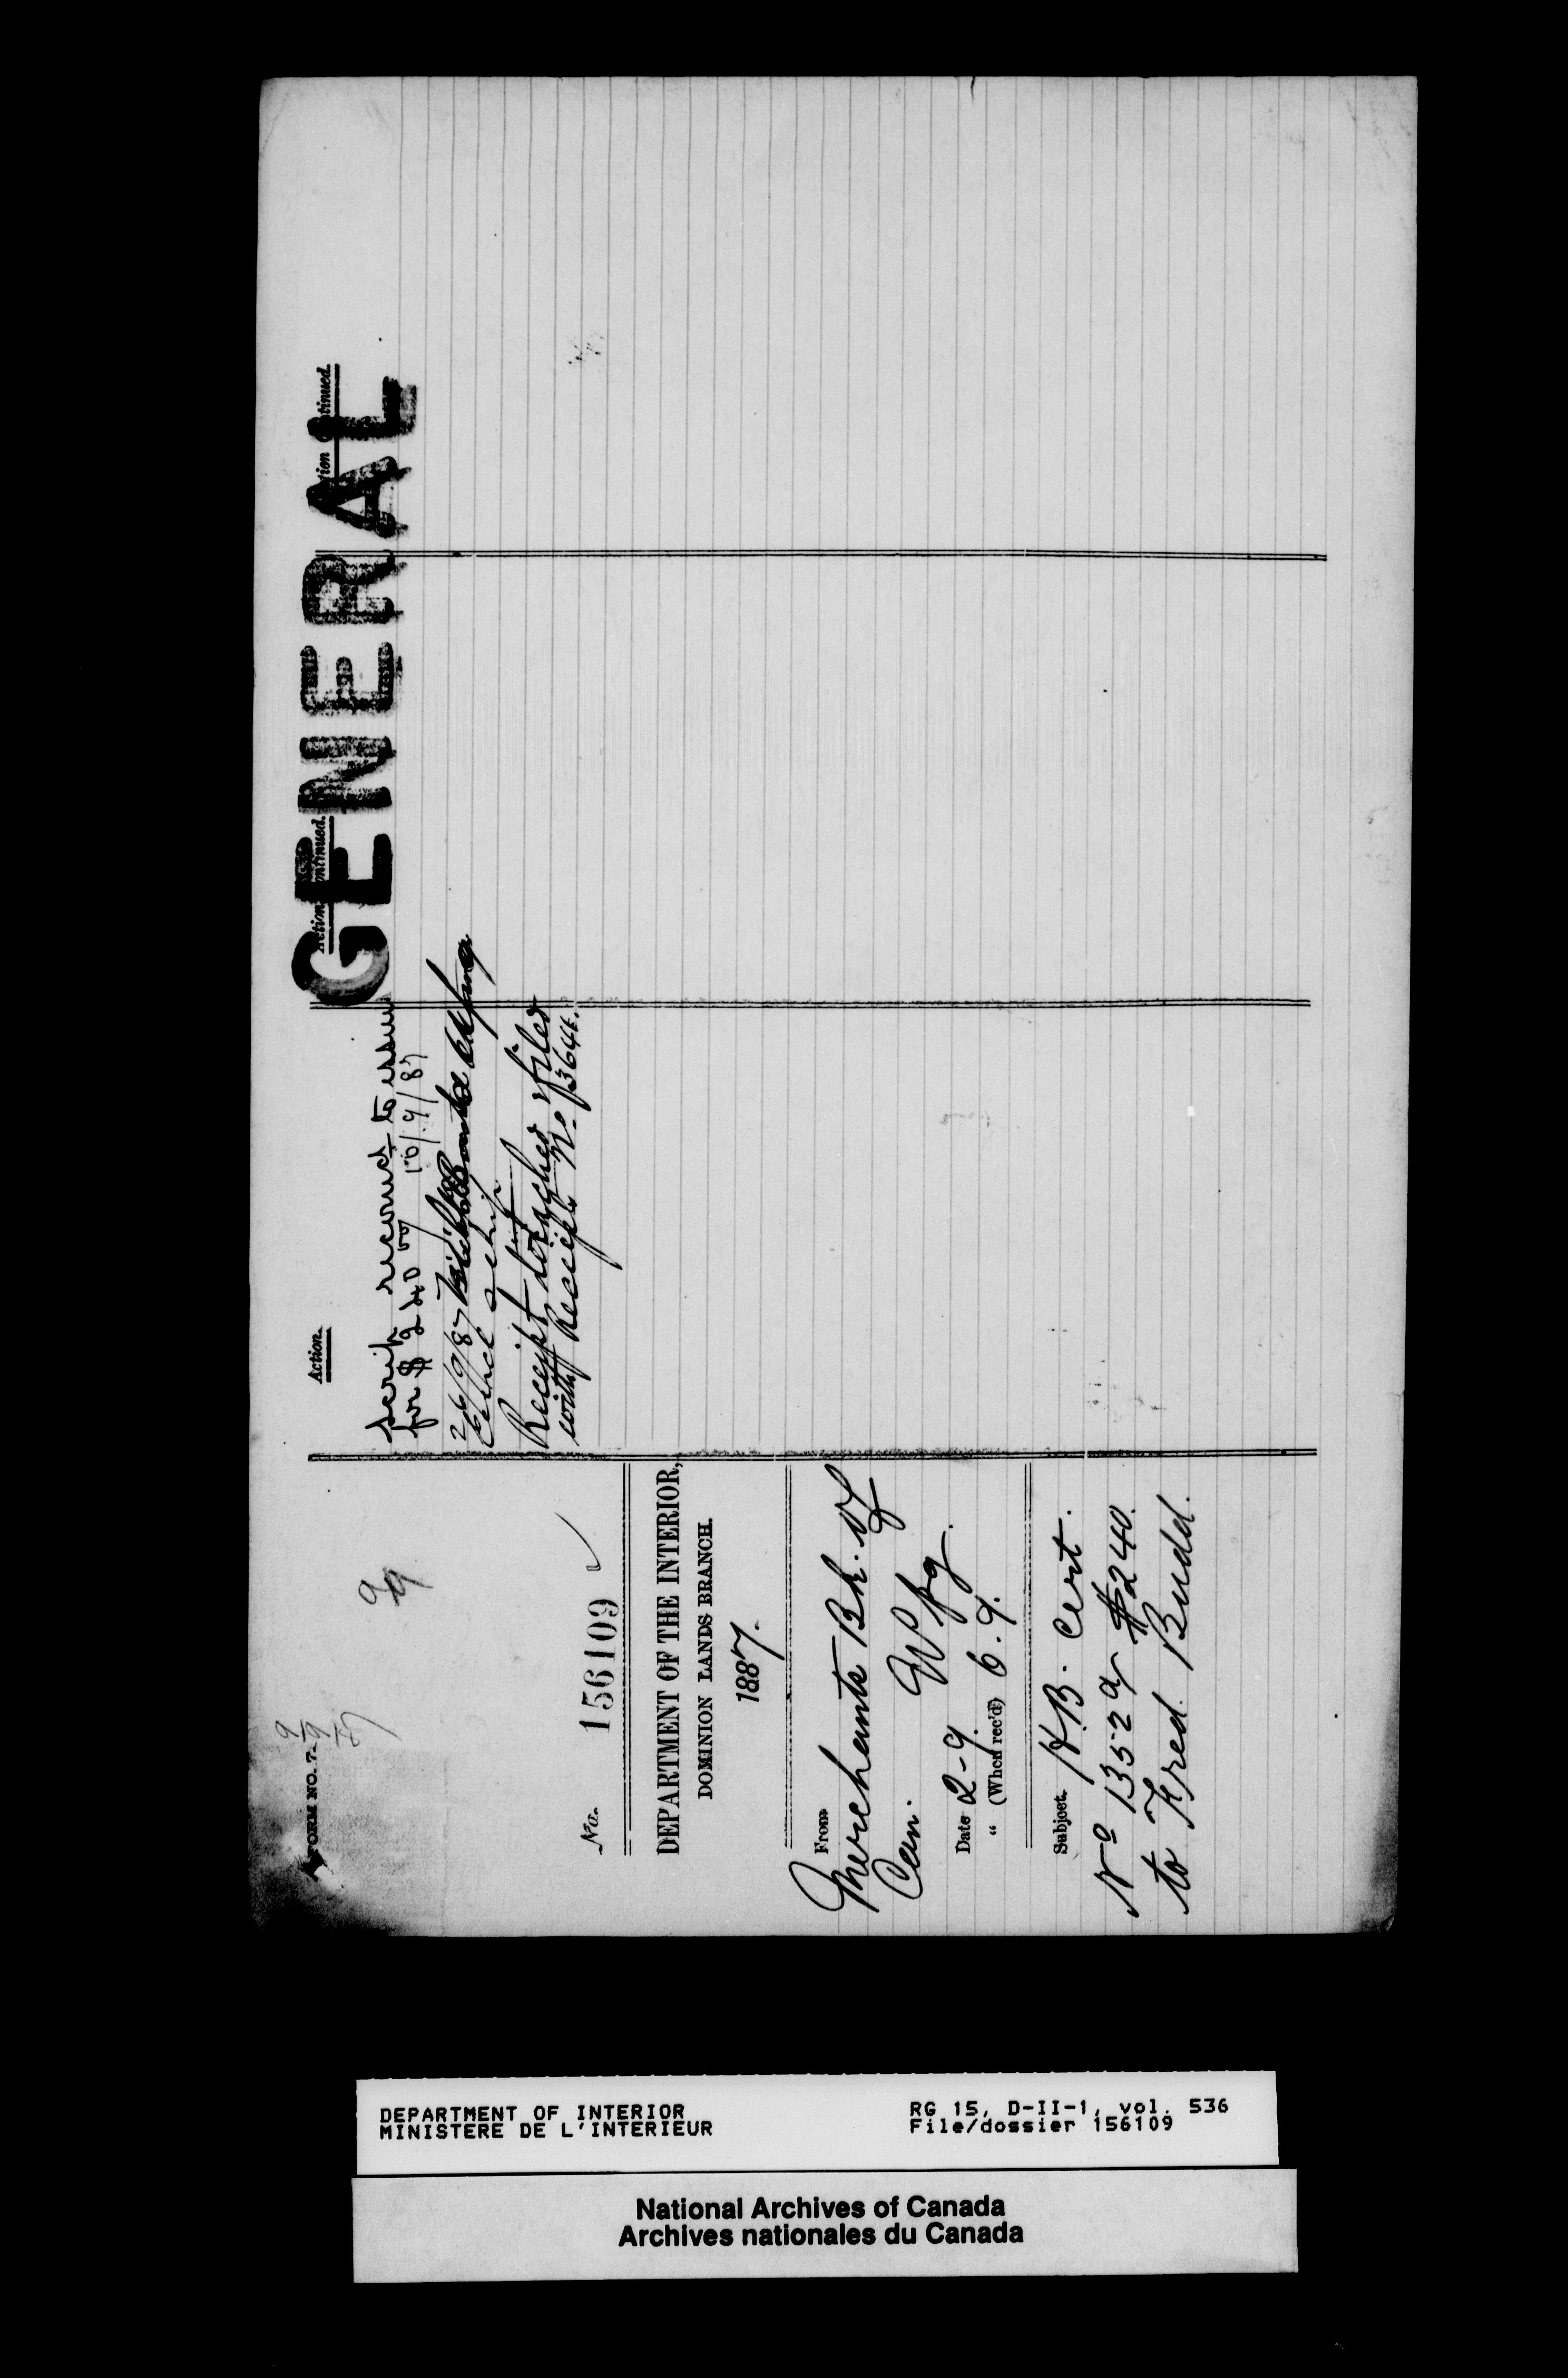 FORM NO. 7.
9
9
87
9
9
No. 156109
DEPARTMENT OF THE INTERIOR,
DOMINION LANDS BRANCH.
1887.
From
Merchants Bk. of
Can. Wpg.
Date 2-9.
" (When rec'd) 6.9.
Subject. H.B. Cert.
No 1352 $240.
to Fred. Budd.
Action.
Scrip record to issue
for $240 00 10/9/87
26/9/87
scrip
Receipt attached & filed
with Receipt No 3644.
GENERAL
Action Continued.
Action Continued.
DEPARTMENT OF INTERIOR
MINISTERE DE L'INTERIEUR
RG 15, D-II-1, vol. 536
File/dossier 156109
National Archives of Canada
Archives nationales du Canada